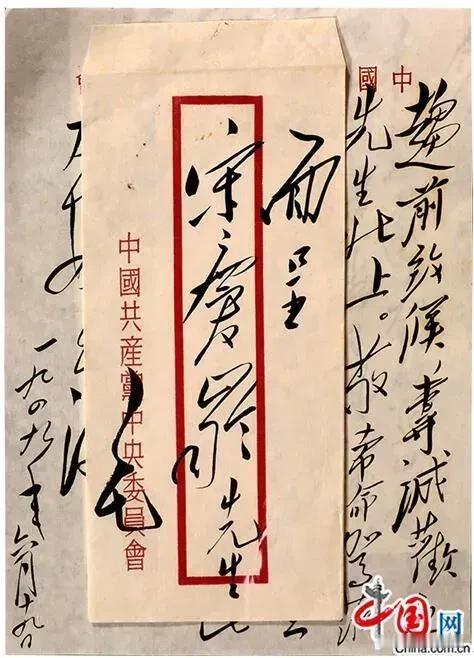 中國
趨前致候、專誠歡
先生北上。敬希命駕
面呈
宋慶齡先生
毛
中國共產黨中央委員會
一九四九年六月十九日
中国网
China.com.cn